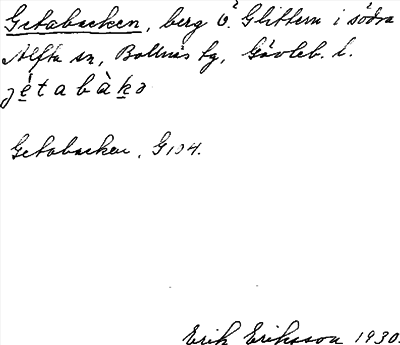 Getabacken, berg Ö. Glittern i södra
Alfta sn, Bollnäs tg, Gävleb. l.
jétabàkə
Getabacken, G 104.
Erik Eriksson 1930.